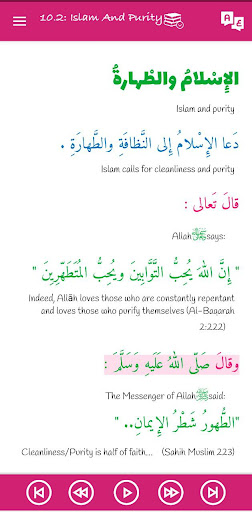 10.2: Islam And Purity
الإِسْلامُ والطَّهارةُ
Islam and purity
دَعا الإِسْلامُ إِلى النَّظافَةِ والطَّهارَةِ .
Islam calls for cleanliness and purity
قالَ تَعالى :
Allah ﷻ says:
" إِنَّ اللهَ يُحِبُّ التَّوَّابِينَ ويُحِبُّ المُتَطَهِّرِينَ "
Indeed, Allāh loves those who are constantly repentant
and loves those who purify themselves (Al-Baqarah
2:222)
وقالَ صَلَّى اللهُ عَلَيهِ وَسَلَّمَ :
The Messenger of Allah ﷺ said:
"الطُّهورُ شَطْرُ الإِيمانِ.. "
Cleanliness/Purity is half of faith... (Sahih Muslim 223)